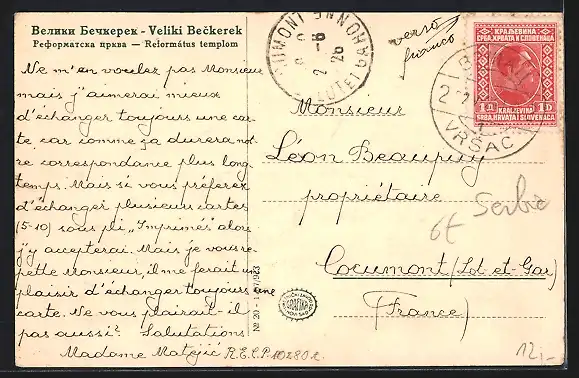 Велики Бечкерек - Veliki Bečkerek
Реформатска црква — Református templom
Ne m'en voulez pas Monsieur
mais j'aimerai mieux
d'échanger toujours une car-
te, car comme ça durera not-
re correspondance plus long-
temps. Mais si vous préferez
d'échanger plusieurs cartes
(5-10) sous pli „Imprimés" alors
j'y accepterai. Mais je vous re-
pette Monsieur, il me ferait un
plaisir d'échanger toujours une
carte. Ne vous plairait-il
pas aussi? Salutations
Madame Matejić R.E.C.P. 10280 r.
verso
franco
КРАЉЕВИНА
СРБА, ХРВАТА И СЛОВЕНАЦА
1 Д
1 D
KRALJEVINA
SRBA, HRVATA I SLOVENACA
VRŠAC
Monsieur
Léon Beaupuy
propriétaire
Cocumont (Lot et Gar)
(France)
Serbie
6t
12,-